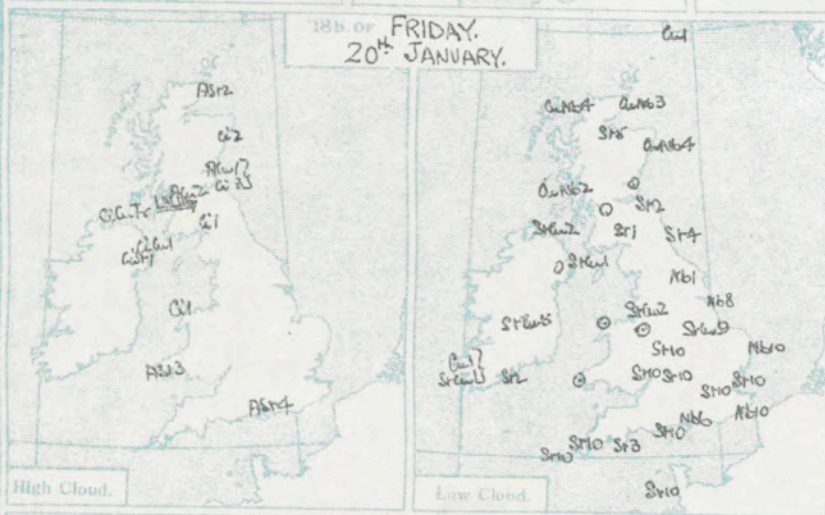 18h. OF FRIDAY.
20TH JANUARY.
ASt2
Ci2
ACu1}
Ci1
CiCu1
Ci1
ASt3
ASt4
High Cloud.
Cu1
CuNb4
CuNb3
St8
CuNb4
CuNb2
St2
StCu2
St1
St4
StCu1
Nb1
Nb8
StCu2
StCu8
StCu9
St10
Nb10
Cu1}
St2
St10
St10
St10
St10
Nb6
Nb10
St10
St10
St3
St10
St10
Low Cloud.